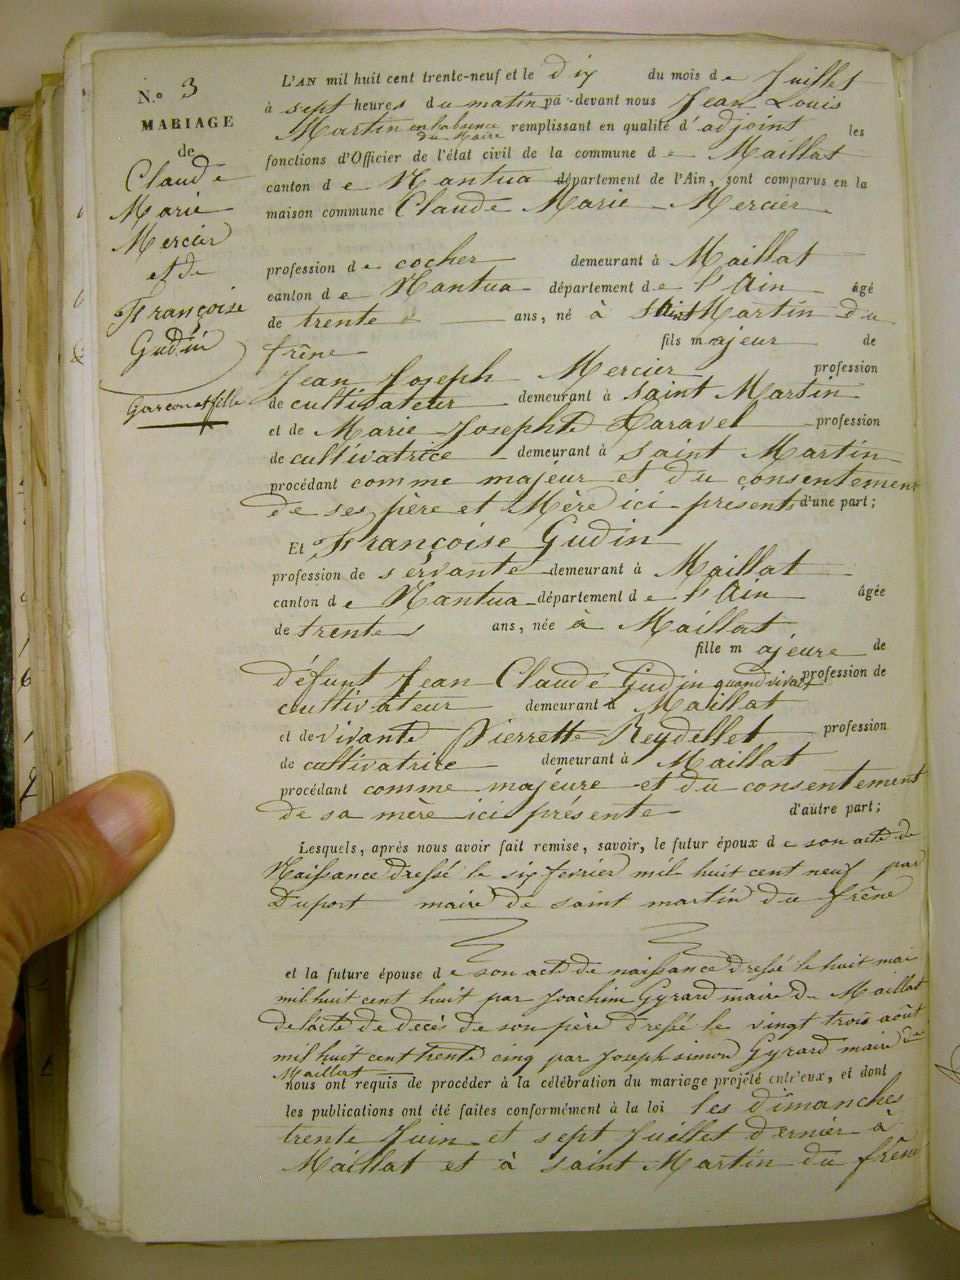 N.o 3
MARIAGE
de
Claude
Marie
Mercier
et de
Françoise
Gudin
Garcon et fille
L'AN mil huit cent trente-neuf et le dix du mois de Juillet
à sept heures du matin pa -devant nous Jean Louis
Martin en l'absence du Maire remplissant en qualité d'adjoint les
fonctions d'Officier de l'état civil de la commune de Maillat
canton de Nantua département de l'Ain, sont comparus en la
maison commune Claude Marie Mercier
profession de cocher demeurant à Maillat
canton de Nantua département de l'Ain âgé
de trente ans, né à Saint Martin du
frêne fils majeur de
Jean Joseph Mercier profession
de cultivateur demeurant à saint Martin
et de Marie Josephte Laravel profession
de cultivatrice demeurant à saint Martin
procédant comme majeur et du consentement
de ses père et Mère ici presents d'une part;
Et Françoise Gudin
profession de servante demeurant à Maillat
canton de Nantua département de l'Ain âgée
de trente ans, née à Maillat
fille majeure de
défunt Jean Claude Gudin quand vivait profession de
cultivateur demeurant à Maillat
et de vivante Pierrette Reydellet profession
de cultivatrice demeurant à Maillat
procédant comme majeure et du consentement
de sa mère ici présente d'autre part;
Lesquels, après nous avoir fait remise, savoir, le futur époux de son acte de
Naissance dressé le six février mil huit cent neuf par
Duport maire de saint martin du frêne
et la future épouse de son acte de naissance dressé le huit mai
mil huit cent huit par Joachim Gyrard maire de Maillat
de l'acte de decès de son père dressé le vingt trois août
mil huit cent trente cinq par Joseph simon Gyrard maire de
Maillat
nous ont requis de procéder à la célébration du mariage projeté entr'eux, et dont
les publications ont été faites conformément à la loi les dimanches
trente Juin et sept Juillet dernier à
Maillat et à saint Martin du frêne